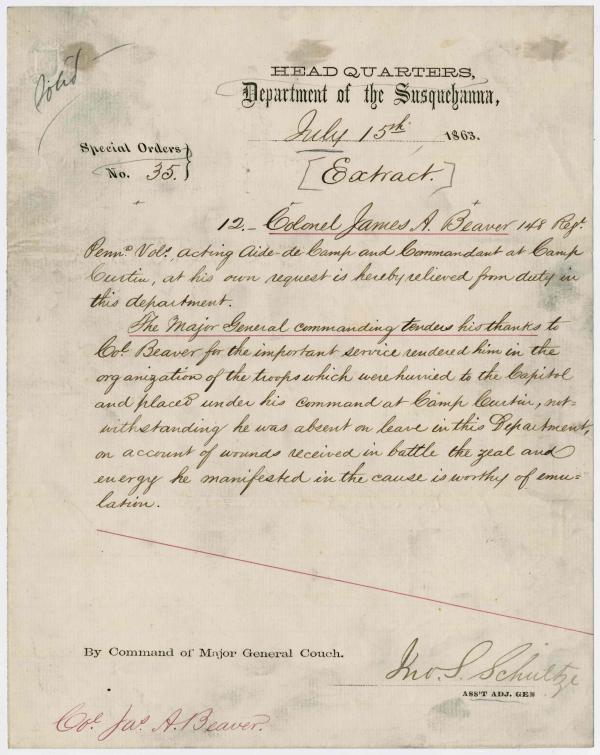 Solid
HEAD QUARTERS,
Department of the Susquehanna,
July 15th 1863.
Special Orders
No. 35.
[Extract.]
12.- Colonel James A. Beaver 148 Regt.
Penna. Vols. acting Aide-de-Camp and Commandant at Camp
Curtin, at his own request is hereby relieved from duty in
this department.
The Major General commanding tenders his thanks to
Col. Beaver for the important service rendered him in the
organization of the troops which were hurried to the Capitol
and placed under his command at Camp Curtin, not-
withstanding he was absent on leave in this Department,
on account of wounds received in battle the zeal and
energy he manifested in the cause is worthy of emu=
lation.
By Command of Major General Couch.
Jno. S. Schultze
ASS'T ADJ. GEN
Col. Jas. A. Beaver.